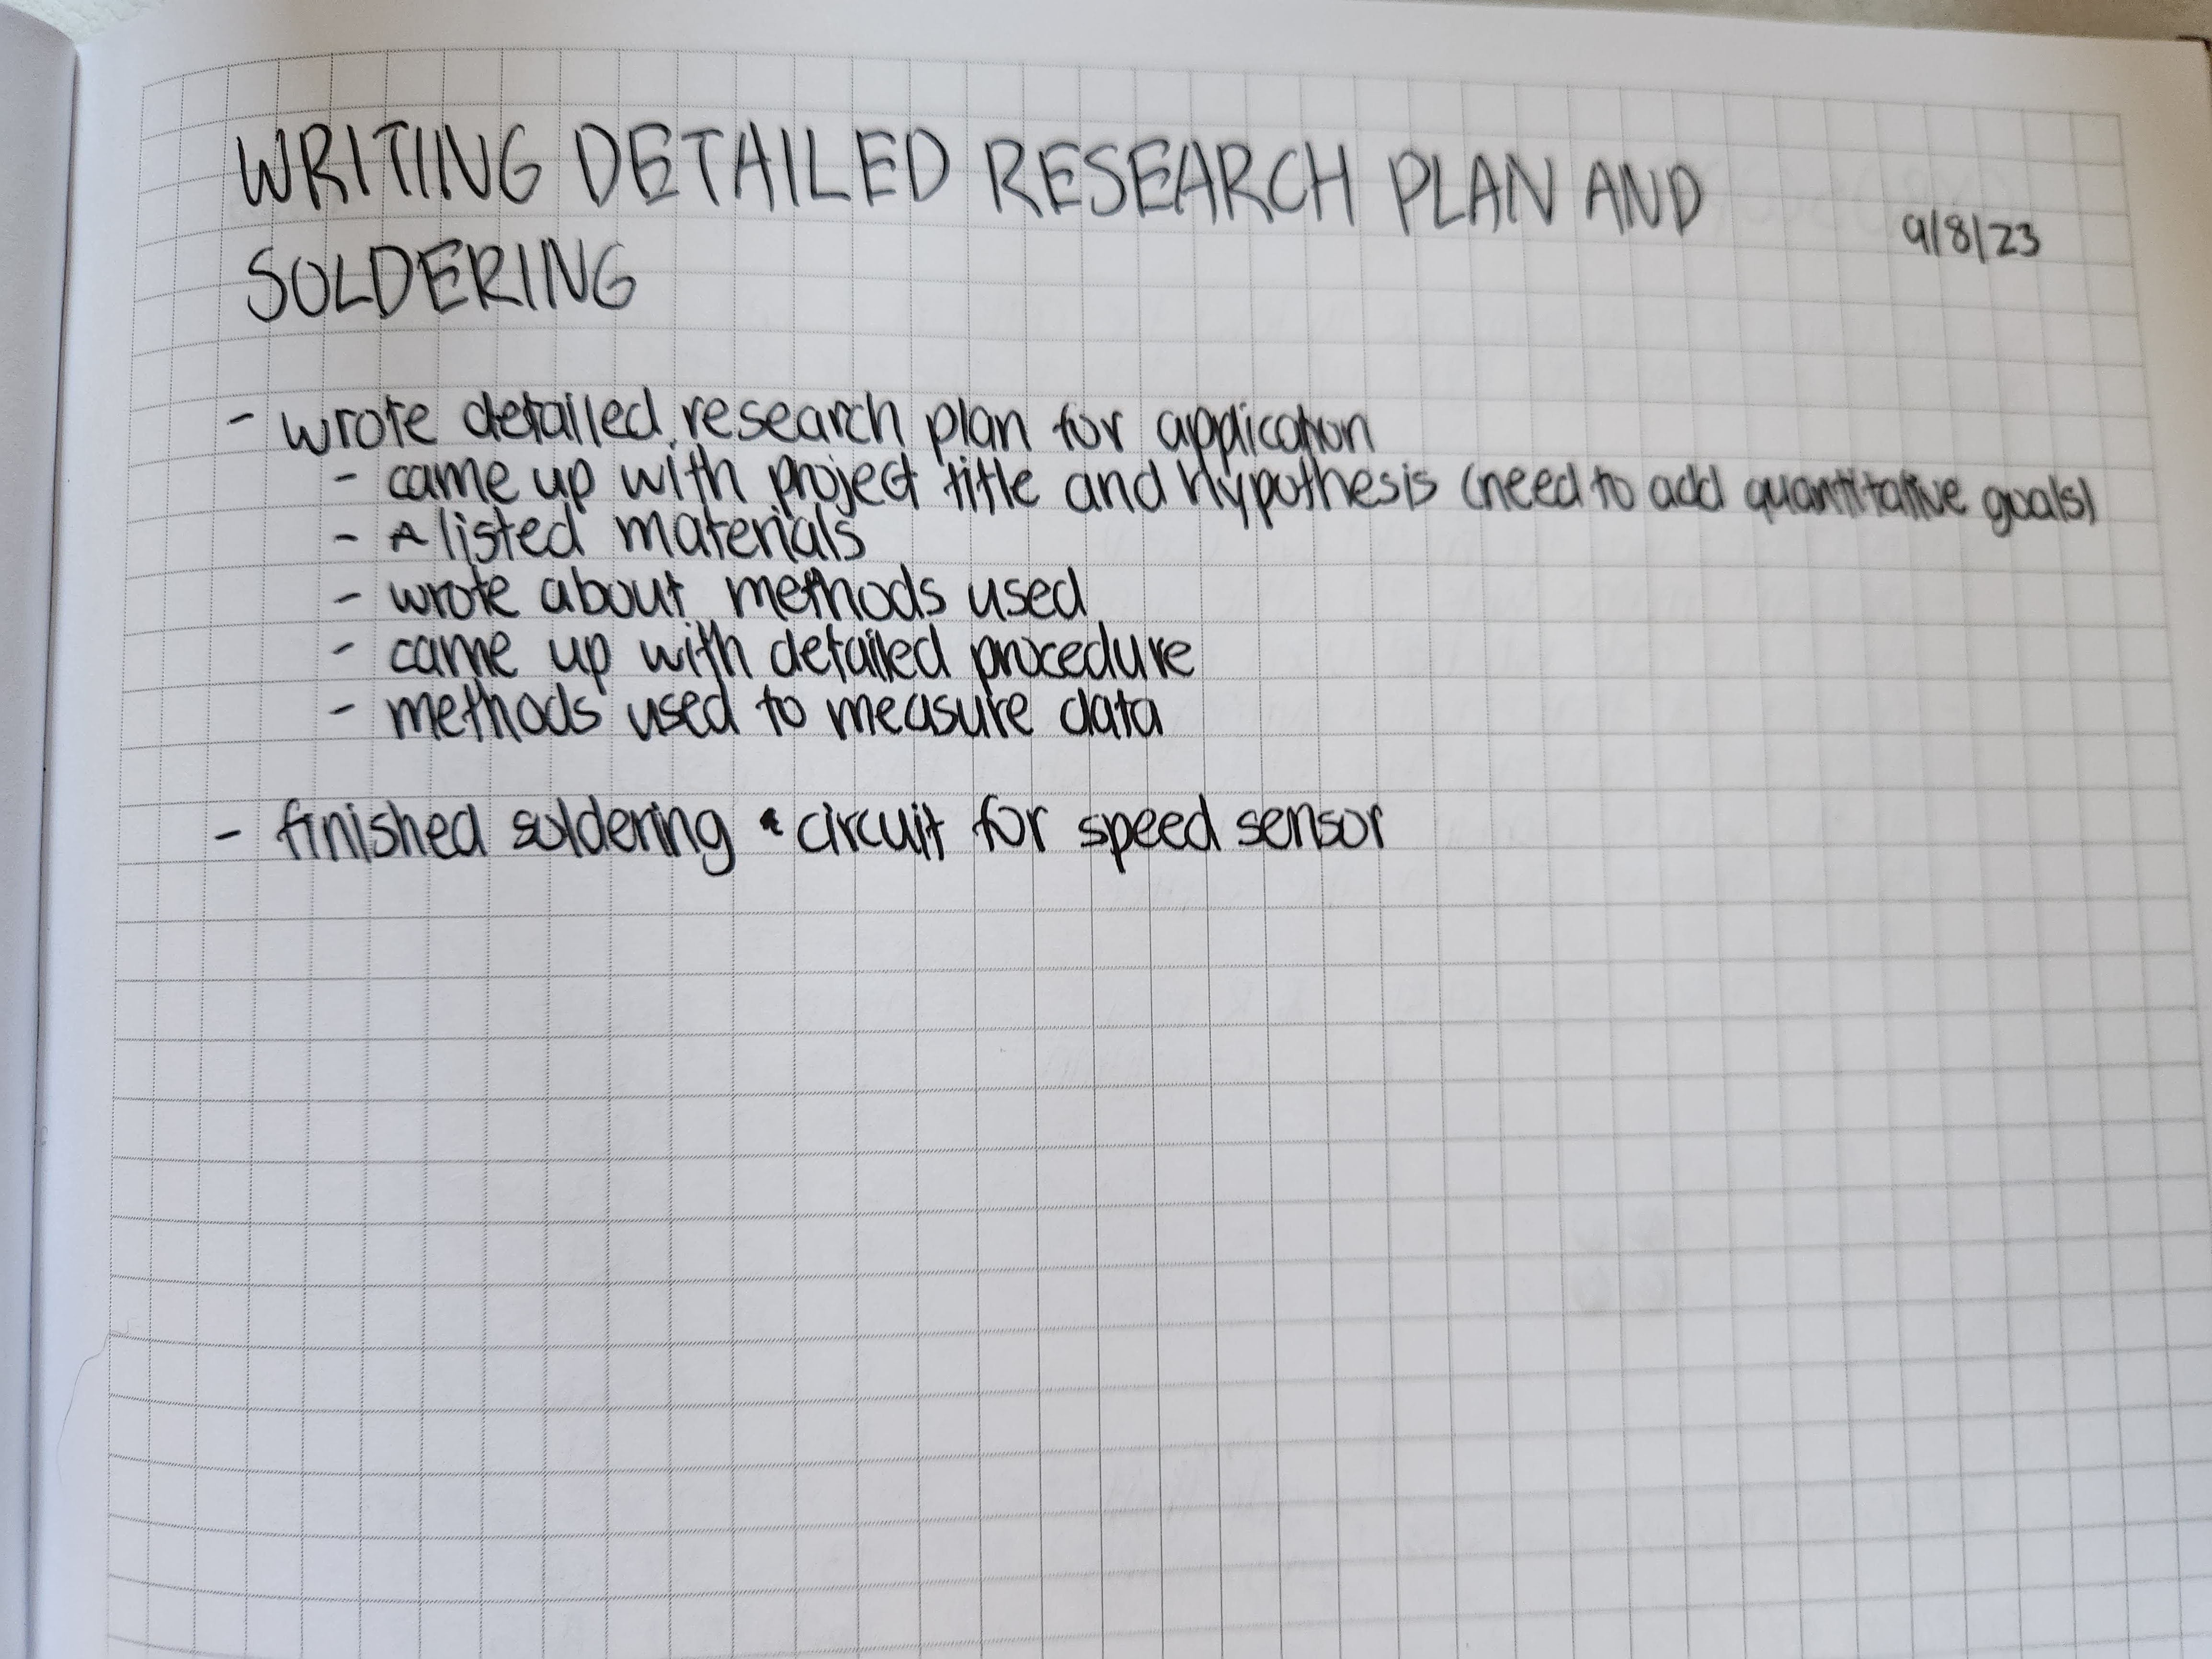 WRITING DETAILED RESEARCH PLAN AND
9/8/23
SOLDERING
- wrote detailed research plan for application
- came up with project title and hypothesis (need to add quantitative goals)
- listed materials
- wrote about methods used
- came up with detailed procedure
- methods used to measure data
- finished soldering circuit for speed sensor